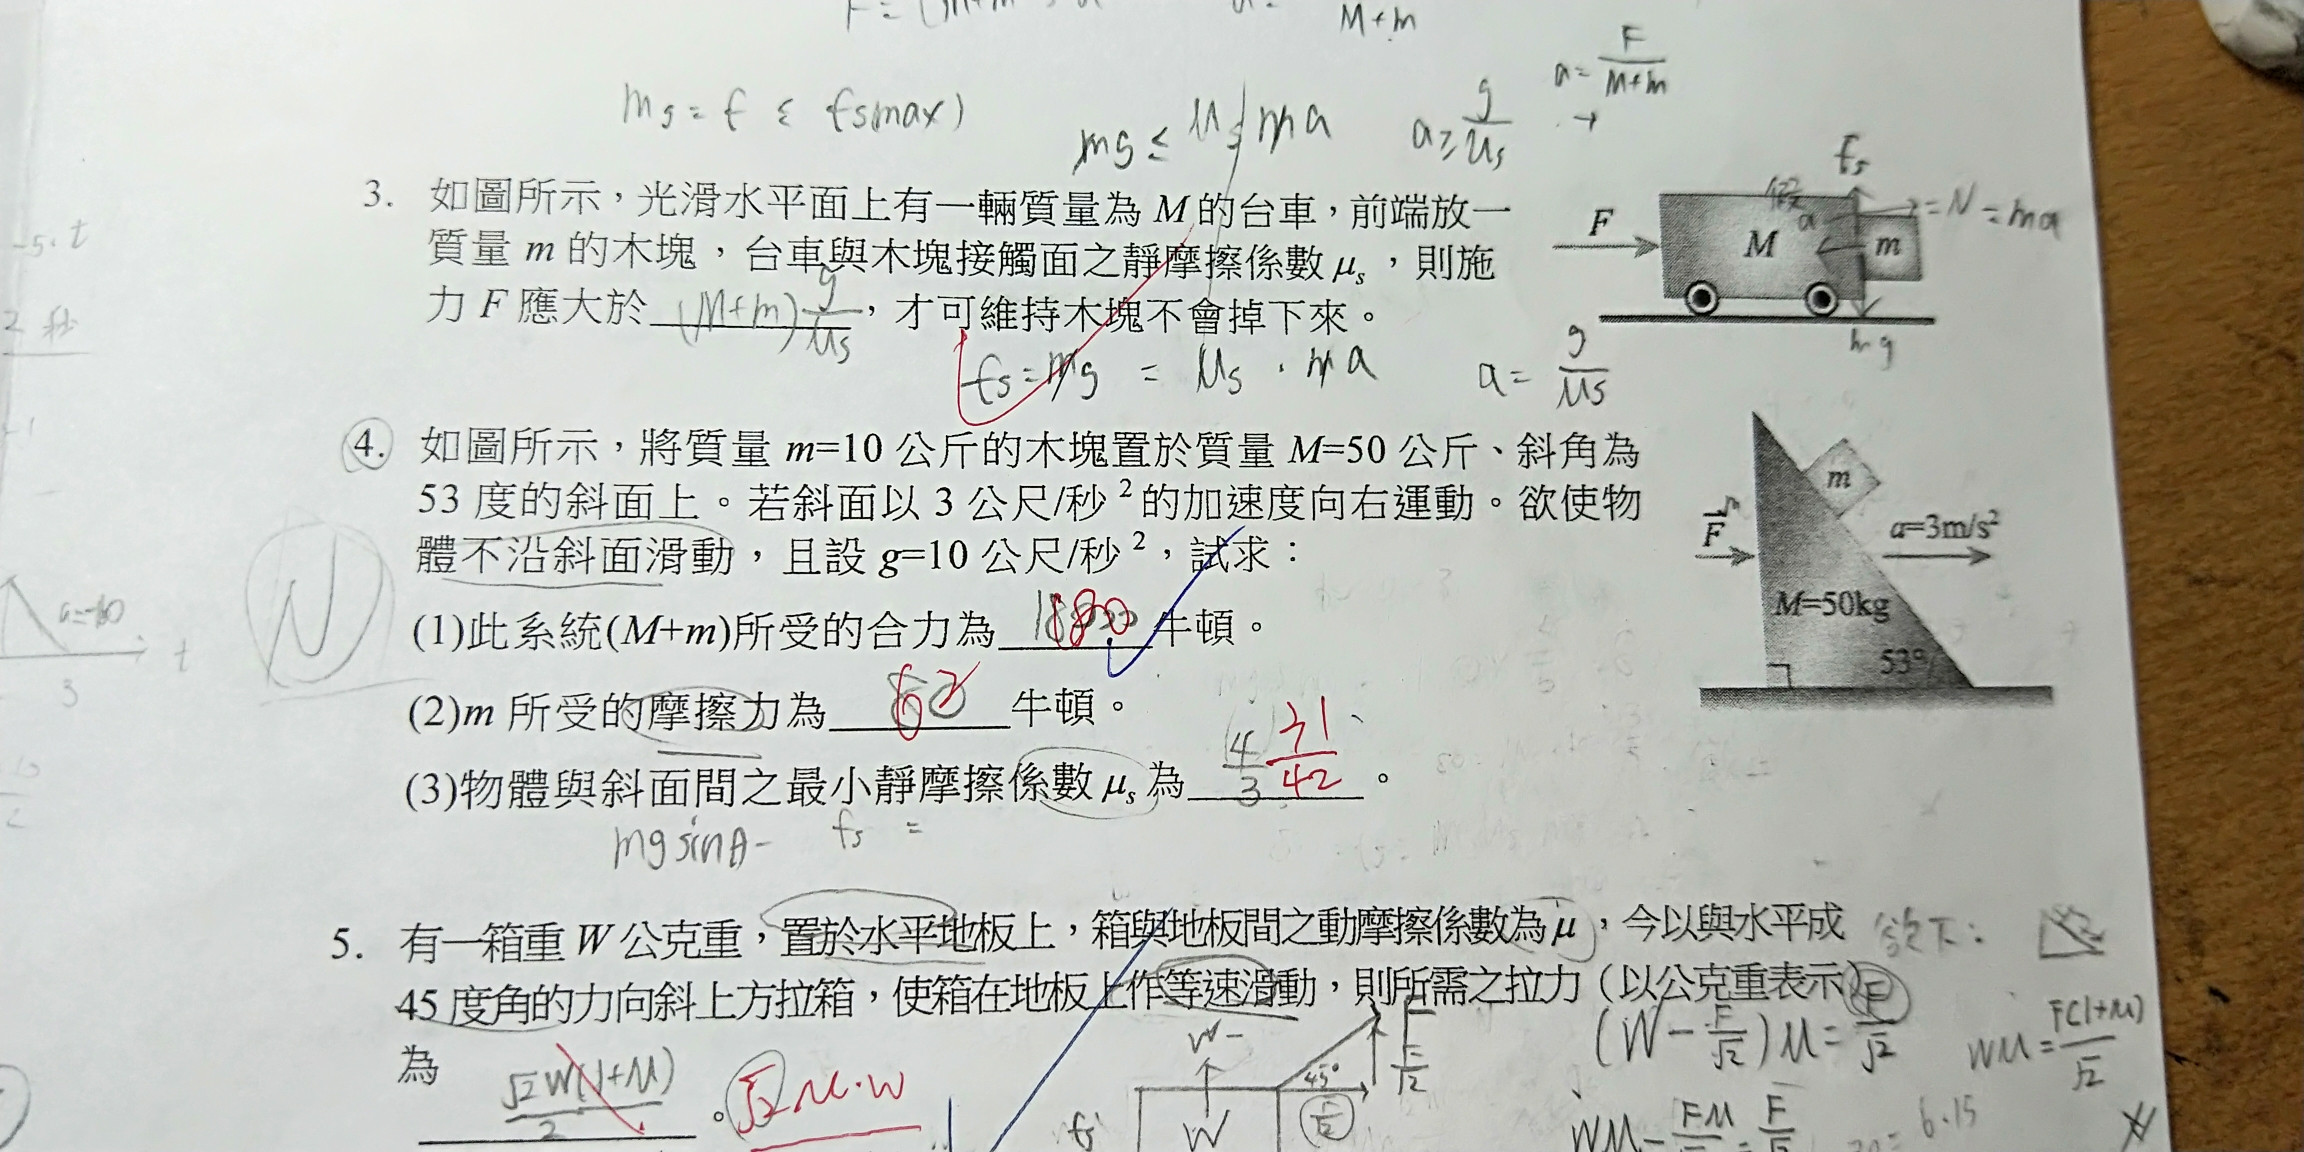 M+m
mg = f ≤ fs(max)
mg ≤ μs ma
a ≥ g/μs
a = F/(M+m)
→
3. 如圖所示，光滑水平面上有一輛質量為 M 的台車，前端放一
質量 m 的木塊，台車與木塊接觸面之靜摩擦係數 μs，則施
力 F 應大於 (M+m) g/μs，才可維持木塊不會掉下來。
fs = mg = μs · ma
a = g/μs
F
M
a
m
fs
= N = ma
mg
4. 如圖所示，將質量 m=10 公斤的木塊置於質量 M=50 公斤、斜角為
53 度的斜面上。若斜面以 3 公尺/秒² 的加速度向右運動。欲使物
體不沿斜面滑動，且設 g=10 公尺/秒²，試求：
(1)此系統(M+m)所受的合力為 180 牛頓。
(2)m 所受的摩擦力為 62 牛頓。
(3)物體與斜面間之最小靜摩擦係數 μs 為 4/3 31/42。
mg sinθ - fs =
F
m
a=3m/s²
M=50kg
53°
5. 有一箱重 W 公克重，置於水平地板上，箱與地板間之動摩擦係數為 μ，今以與水平成
45 度角的力向斜上方拉箱，使箱在地板上作等速滑動，則所需之拉力（以公克重表示）
為 √2W(1+μ)/2。 √2 μ·W
W-
F
F/√2
45°
F/√2
W
(W - F/√2)μ = F/√2
Wμ = F(1+μ)/√2
6.15
-5·t
2 秒
t
3